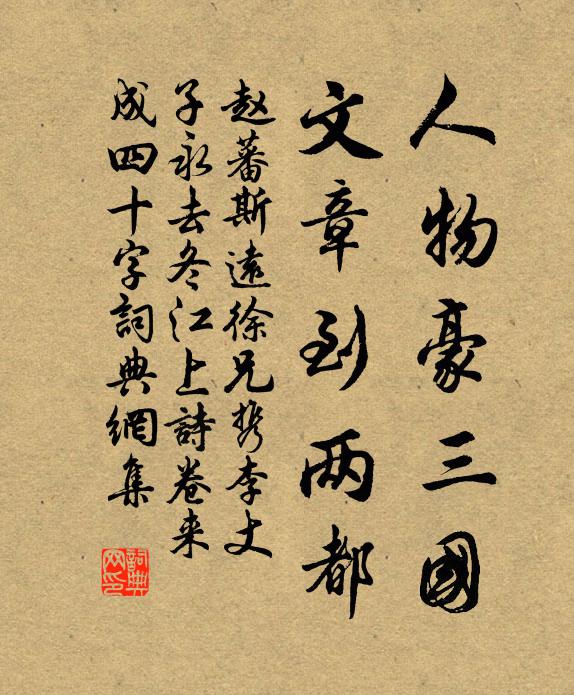 人物豪三國
文章到两都
赵蕃斯遠徐兄携李丈
子永去冬江上詩卷来
成四十字詞典網集
詞典
网印